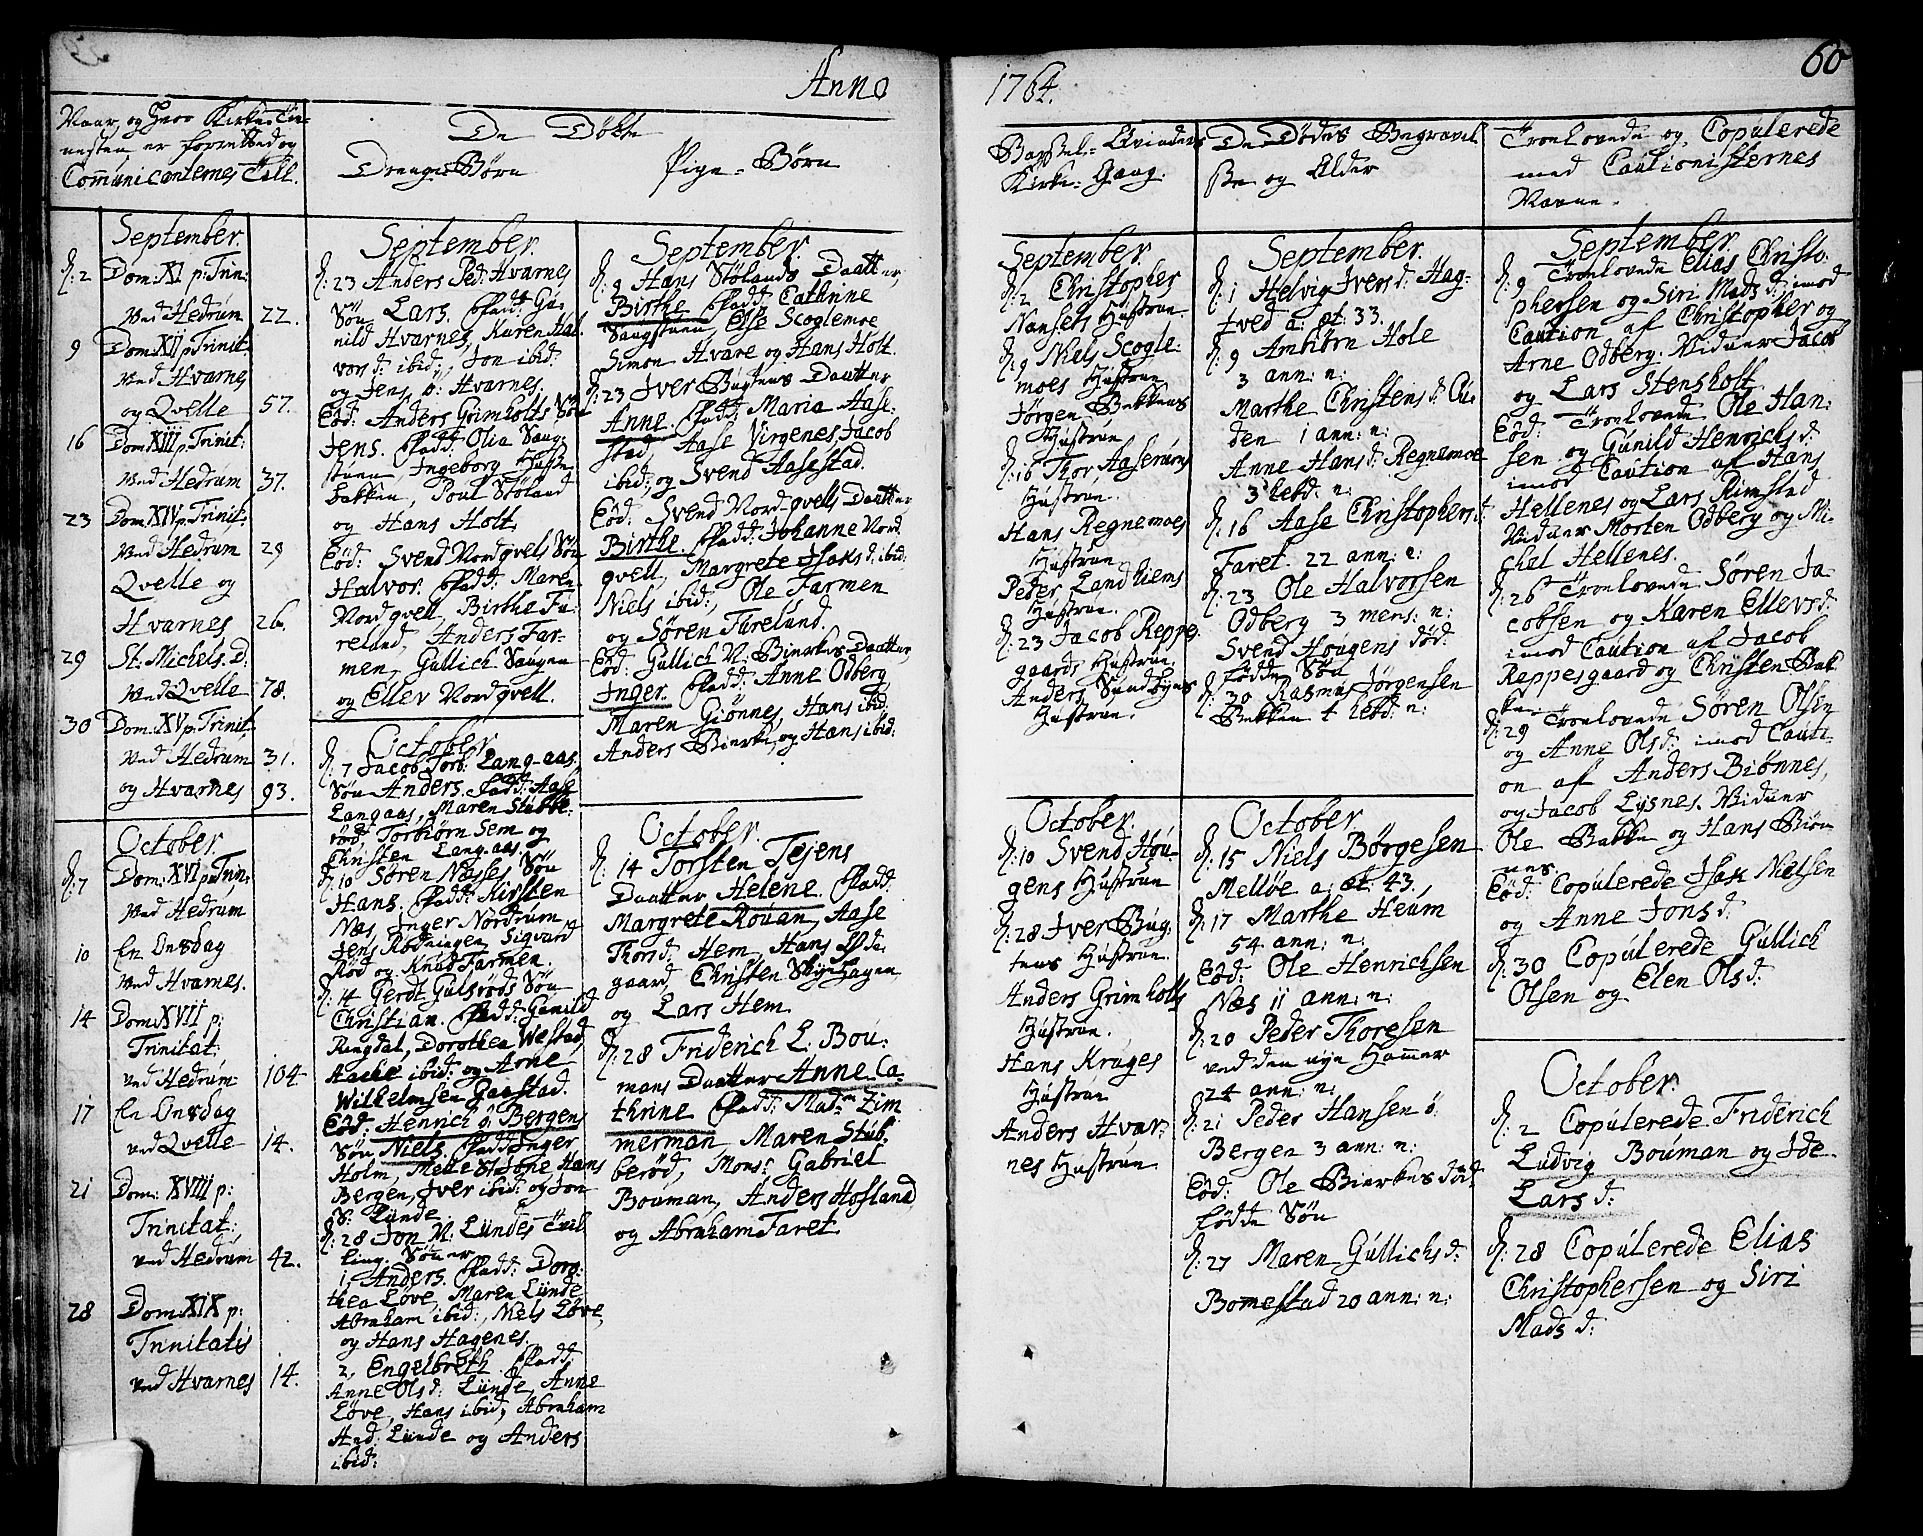 Anno
Naar, og hvor Kirke-Tie-
nesten er forrettet og
Communicanternes Tall.
De Døbte
Drenge-Børn
Pige-Børn
September.
d: 2 Dom: XI p: Trin:
ved Hedrum 22.
9 Dom: XII p: Trinit:
ved Hvarnes
og Qvelle 57.
16 Dom: XIII p: Trinit:
ved Hedrum 37.
23 Dom: XIV p: Trinit:
ved Hedrum 29
Qvelle og
Hvarnes 26.
29 St. Michels. D:
ved Qvelle 78.
30 Dom: XV p: Trinit:
ved Hedrum 31.
og Hvarnes 93.
October.
d: 7 Dom: XVI p: Trin:
ved Hedrum
10 En Onsdag
ved Hvarnes.
14 Dom: XVII p:
Trinitat:
ved Hedrum 104
17 En Onsdag
ved Qvelle 14.
21 Dom: XVIII p:
Trinitat:
ved Hedrum 42.
28 Dom: XIX p:
Trinitatis
ved Hvarnes 14.
September.
d: 23 Anders Ped: Hvarnes
Søn Lars. Fadd: Gu-
nild Hvarnes, Karen Hal
vorsd: ibid:, Jon ibid:
og Jens, ø: Hvarnes.
Eod: Anders Grimholts Søn
Jens. Fadd: Olia Saug-
stuen, Ingeborg
bakken, Poul Støland
og Hans Holt.
Eod: Svend Nordqvels Søn
Halvor. Fadd: Maren
Nordqvell, Birthe Fu-
reland, Anders Far-
men, Gullich Haugen
og Ellev Nordqvell.
October.
d: 7 Jacob Torb: Lang-aas,
Søn Anders. Fadd: Aase
Langaas, Maren Stubbe-
rød, Torbiørn Sem og
Christen Lang-aas.
d: 10 Søren Næsses Søn
Hans. Fadd: Kirsten
Næs, Inger Nordrum,
Jens Rødningen, Sigvard
Rød og Knud Farmen.
d: 14 Gerdt Gulsrøds Søn
Christian. Fadd: Gunild
Ringdal, Dorothea Westad,
Aache ibid: og Arne
Wilhelmsen Gaastad.
Eod: Henrich ø: Bergens
Søn Niels. Fadd: Inger
Holm, Mette Hans
Bergen, Iver ibid: og Jon
S: Lunde.
d: 28 Jon N: Lundes Tvil
ling-Sønner
1, Anders. Fadd: Doro-
thea Løve, Maren Lunde
Abraham ibid:, Niels Løve,
og Hans Hagenes.
2, Engelbreth. Fadd:
Anne Olsd: Lunde, Anne
Løve, Hans ibid:, Abraham
And: Lunde og Anders
ibid:
September.
d: 9 Hans Stølands Daatter,
Birthe. Fadd: Cathrine
Saugstuen, Else Scoglemoe
Simon Hvare og Hans Holt.
d: 23 Iver Bugtens Daatter
Anne. Fadd: Maria Aase-
stad, Aase Virgenes, Jacob
ibid: og Svend Aasestad.
Eod: Svend Nord-qvells Daatter
Birthe. Fadd: Johanne Nord
qvell, Margrete Isaksd: ibid:
Niels ibid:, Ole Farmen
og Søren Furelund.
Eod: Gullich N: Bierkes Daatter,
Inger. Fadd: Anne Odberg
Maren Giønnes, Hans ibid:
Anders Bierke, og Hans ibid:
October.
d: 14 Torsten Tejens
Daatter Helene. Fadd:
Margrete Rouan, Aase
Thorsd: Hem, Hans
gaard, Christen Skyehagen
og Lars Hem.
d: 28 Friderich L: Bou-
mans Daatter Anne Ca-
thrine Fadd: Mad:m Zim
merman Maren Stub-
berød, Mons:r Gabriel
Bouman, Anders Hofland
og Abraham Faret
1764.
60
Barsel-Qvinders
Kirke-Gang.
De Dødes Begravel
se og Alder
Troelovede og Copulerede
med Cautionisternes
Navne.
September.
d: 2 Christopher
Nansets Hustrue
d: 9 Niels Scogle-
moes Hustrue
Jørgen Bakkens
Hustrue
d: 16 Thor Aaserums
Hustrue.
Hans Regnemoes
Hustrue
Peder Landhiems
Hustrue.
d: 23 Jacob Reppe-
gaards Hustrue,
Anders Sundbyes
Hustrue.
October.
d: 10 Svend Hou-
gens Hustrue
d: 28 Iver Bug-
tens Hustrue
Anders Grimholts
Hustrue.
Hans Kruges
Hustrue
Anders Hvar-
nes Hustrue
September.
d: 1 Helvig Iversd: Hag-
tved a: æt: 33.
d: 9 Ambiørn Hole
3 ann: n:
Marthe Christensd: Ou
den 1 ann: n:
Anne Hansd: Regnemoe
3 hebd: n:
d: 16 Aase Christophersd:
Faret. 22 ann: n:
d: 23 Ole Halvorsen
Odberg 3 mens: n:
Svend Hougens død:
fødde Søn
d: 30 Rasmus Jørgensen
Bakken 1 hebd: n:
October.
d: 15 Niels Børgesen
Melløe a: æt: 43,
d: 17 Marthe Heum
54 ann: n:
Eod: Ole Henrichsen
Næs 11 ann: n:
d: 20 Peder Thoresen
ved den nye Hammer
24 ann: n:
d: 21 Peder Hansen ø:
Bergen 3 ann: n:
Eod: Ole Bierkes død:
fødde Søn
d: 27 Maren Gullichsd:
Bomestad 20 ann: n:
September.
d: 9 Troelovede Elias Christo-
phersen og Siri Madsd: imod
Caution af Christopher og
Arne Odberg. Viduer Jacob
og Lars Stensholt.
Eod: Troelovede Ole Han-
sen og Gunild Henrichsd:
imod Caution af Hans
Hellenes og Lars Rimstad
Viduer Morten Odberg og Mi-
chel Hellenes.
d: 26 Troelovede Søren Ja-
cobsen og Karen Ellevsd:
imod Caution af Jacob
Reppesgaard og Christen Bak
ken.
d: 29 Troelovede Søren Olsen
og Anne Olsd: imod Cauti-
on af Anders Biønnes,
og Jacob Lysnes. Viduer
Ole Bakke og Hans Biøn
nes.
Eod: Copulerede Isak Nielsen
og Anne Jonsd:
d: 30 Copulerede Gullich
Olsen og Elen Olsd:
October.
d: 2 Copulerede Friderich
Ludvig Bouman og Ide
Larsd:
d: 28 Copulerede Elias
Christophersen og Siri
Madsd: